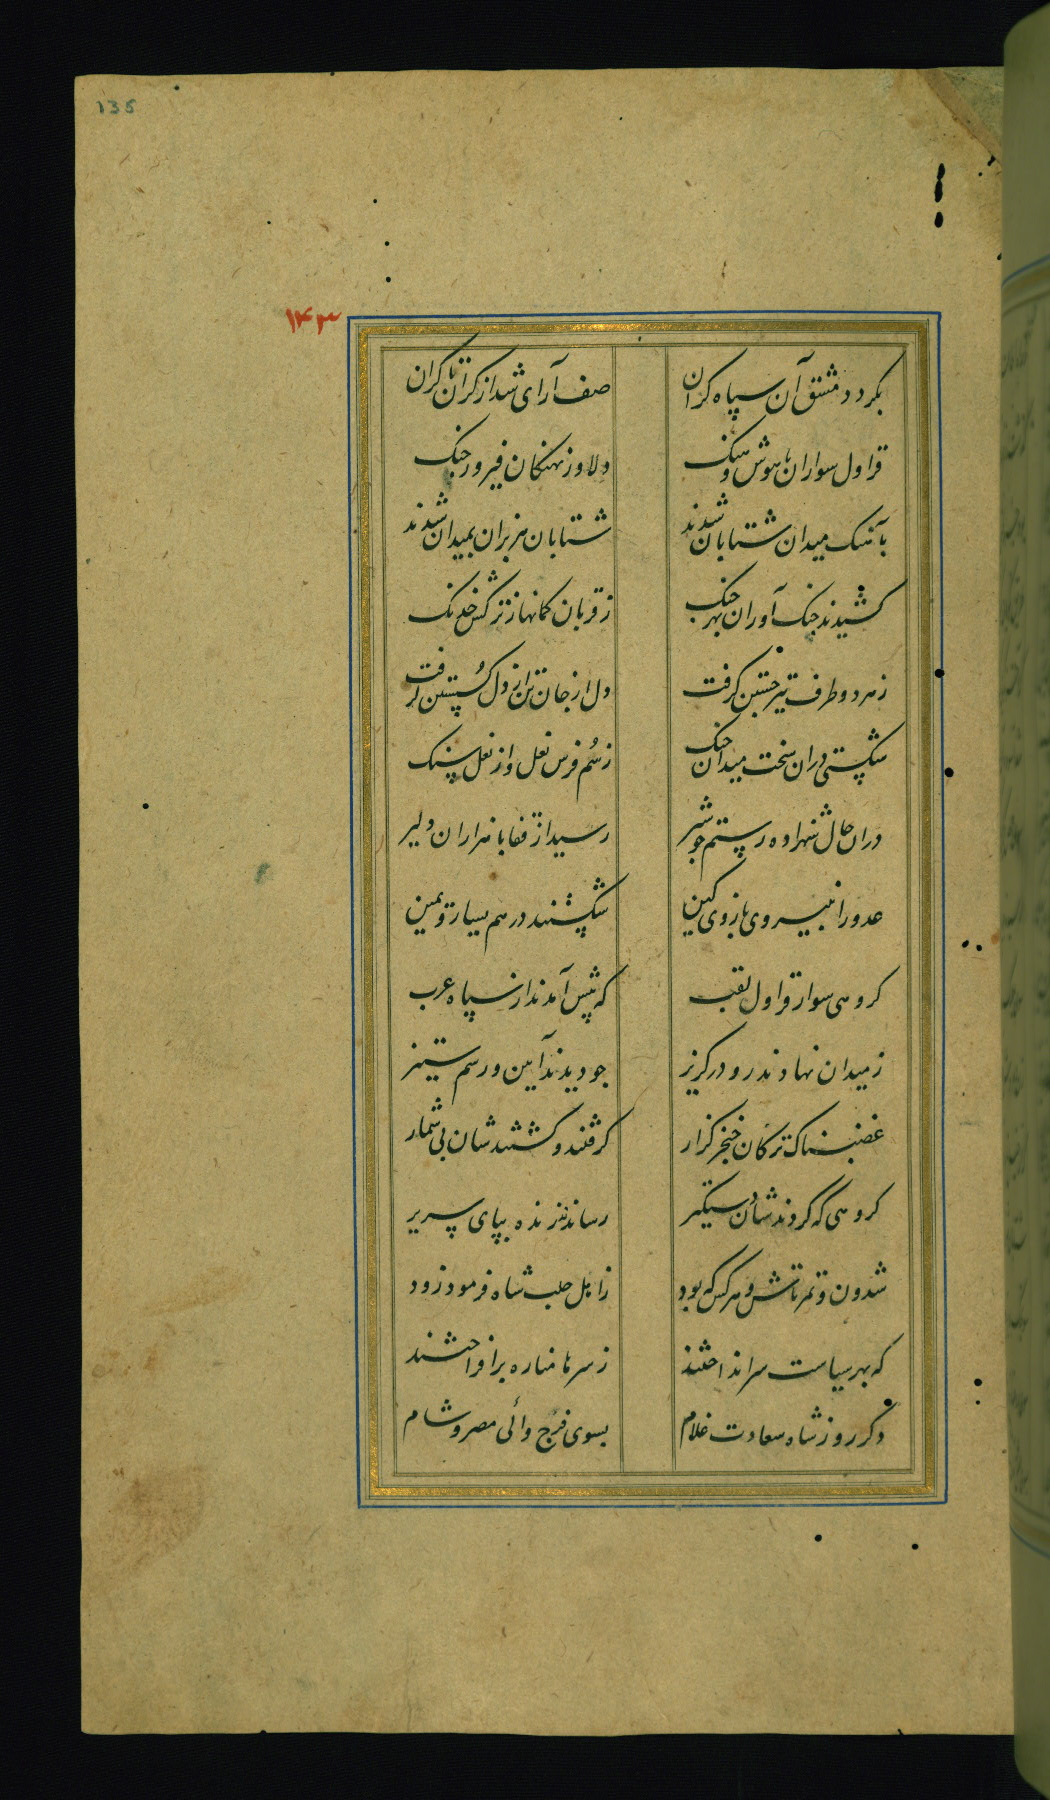 135
۱۴۳
بکرد دمشق آن سپاه کران صف آرای شد از کران تا کران
قراول سواران باهوش و هنک دلاور نهنکان فیروز جنک
بآهنک میدان شتابان شدند شتابان هزبران بمیدان شدند
کشیدند جنک آوران بهر جنک ز قربان کمانها ز ترکش خدنک
ز هر دو طرف تیر جستن کرفت دل از جان تن از دل کسستن کرفت
شکستی دران سخت میدان جنک ز سُم فرس نعل و از نعل سنک
دران حال شهزاده رستم چو شیر رسید از قفا با هزاران دلیر
عدو را به نیروی بازوی کین شکستند در هم یسار و یمین
کروهی سوار قراول لقب که پیش آمدند از سپاه عرب
ز میدان نهادند رو در کریز جو دیدند آیین و رسم ستیز
غضبناک ترکان خنجر کزار کرفتند و کشتندشان بی شمار
کروهی که کردندشان دستکیر رساندند زنده بپای سریر
شدون و تمرتاش و هر کس که بود ز اهل حلب شاه فرمود زود
که بهر سیاست سر انداختند ز سرها مناره برافراختند
دکر روز شاه سعادت غلام بسوی فرج والی مصر و شام